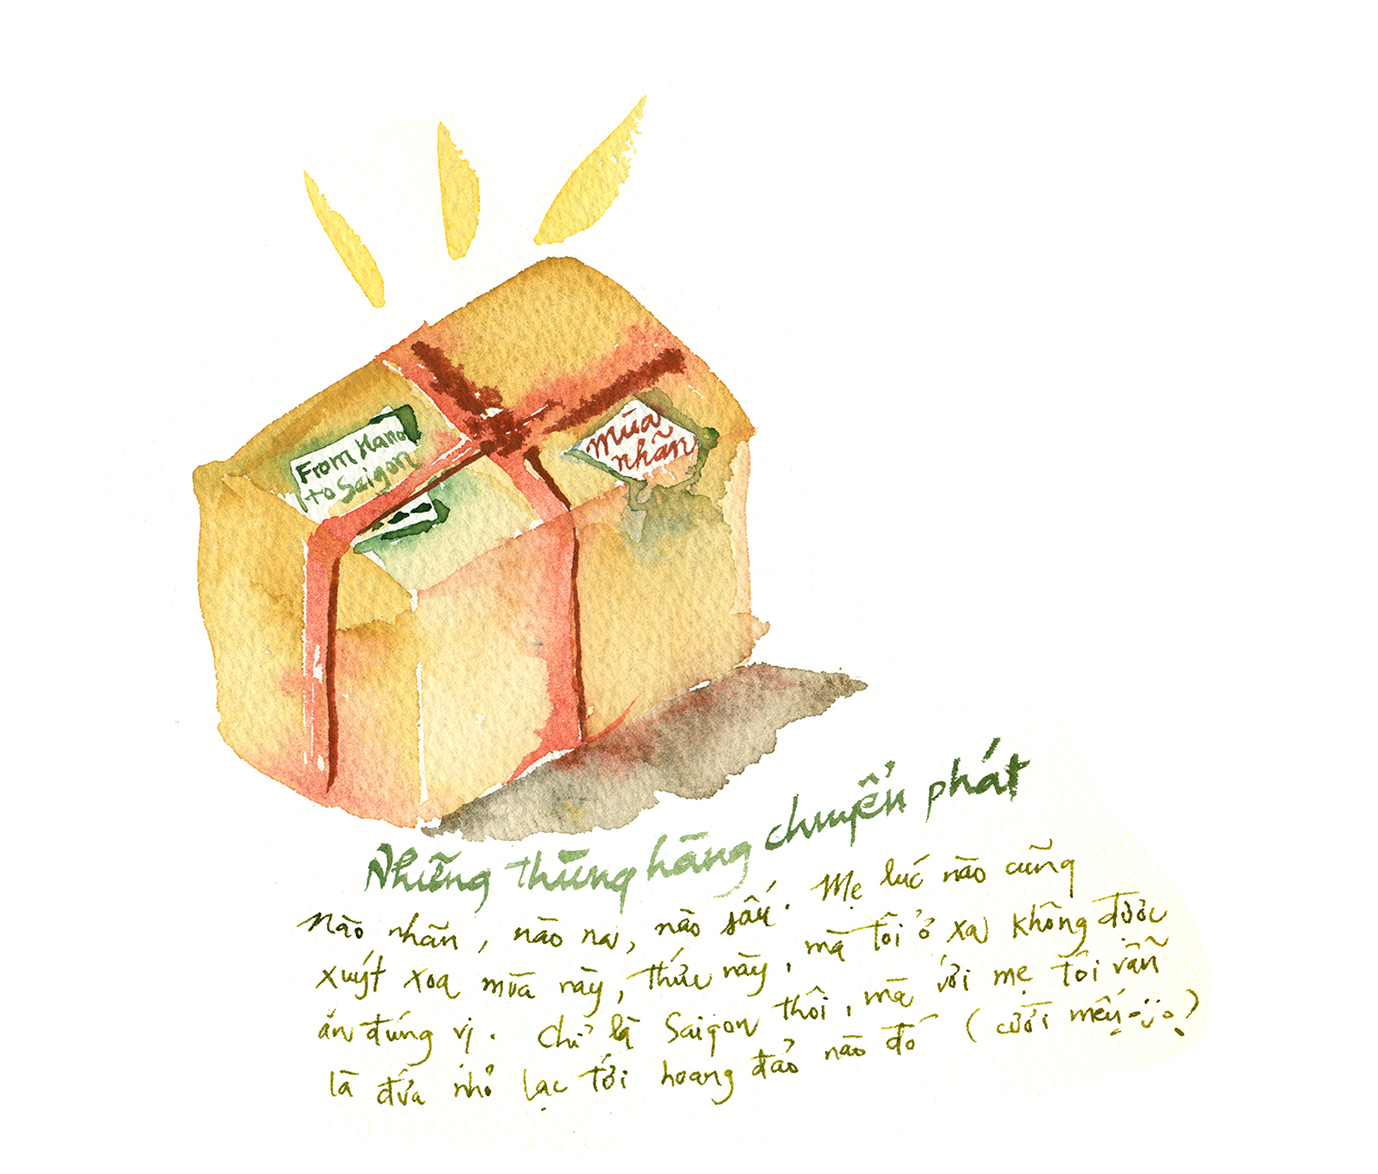 From Hanoi
to Saigon
mùa
nhãn
Những thùng hàng chuyển phát
Nào nhãn, nào na, nào sấu. Mẹ lúc nào cũng
xuýt xoa mùa này, thức này, mà tôi ở xa không được
ăn đúng vị. Chỉ là Saigon thôi, mà với mẹ tôi vẫn
là đứa nhỏ lạc tới hoang đảo nào đó (cười mếu)